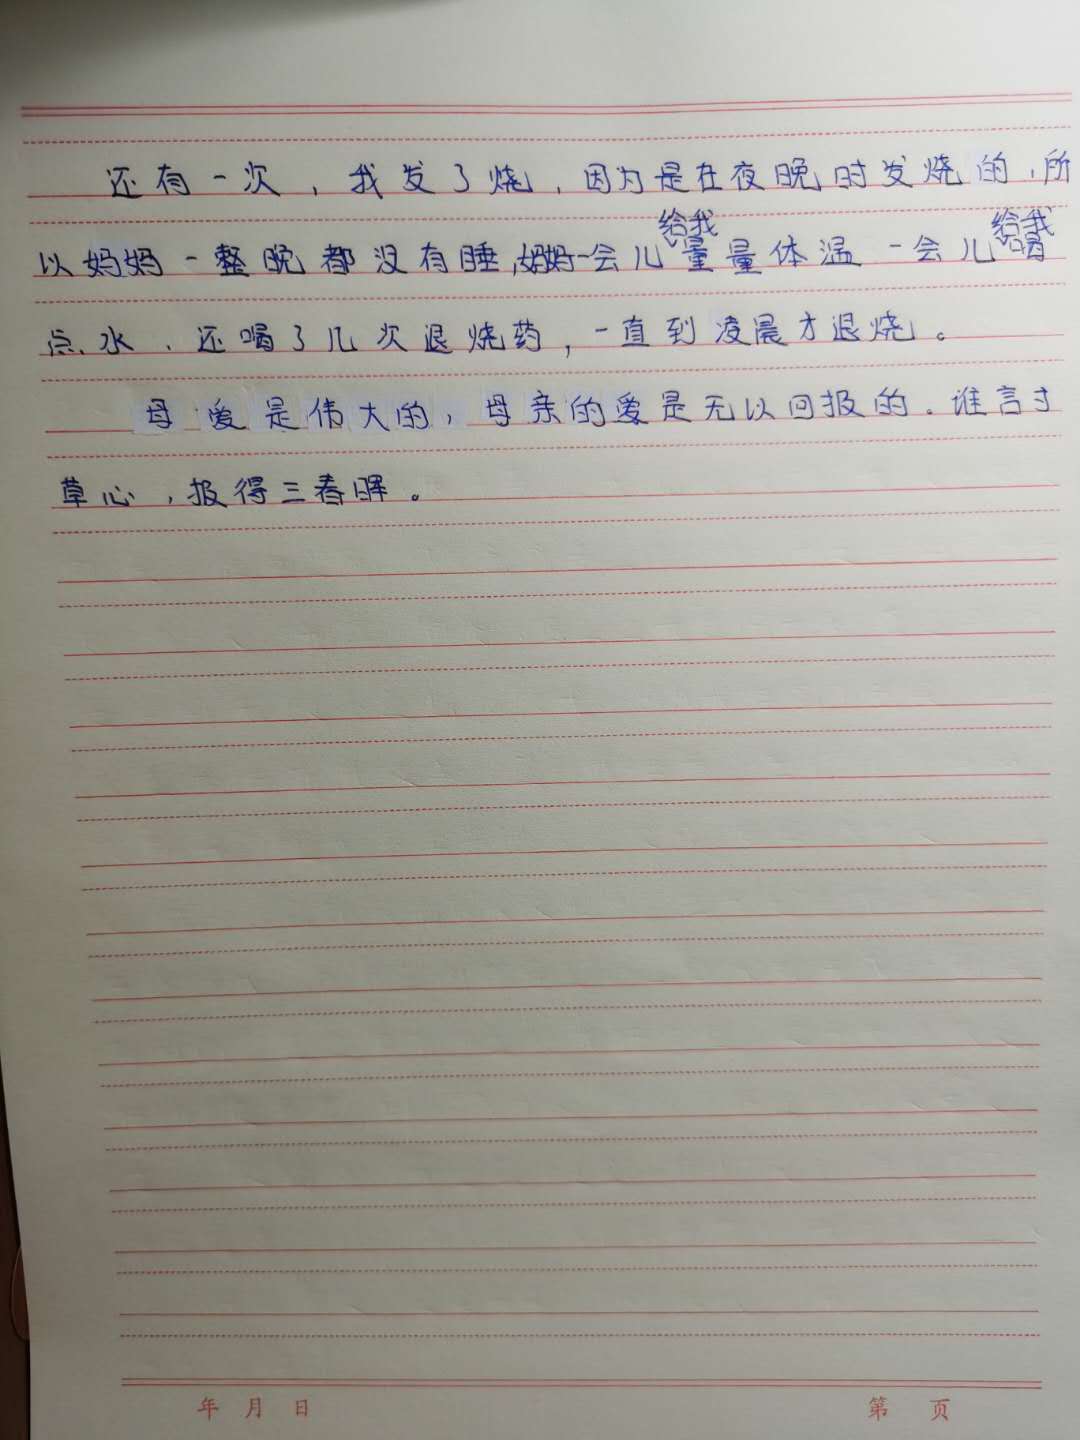 还有一次，我发了烧，因为是在夜晚时发烧的，所
以妈妈一整晚都没有睡，妈妈一会儿给我量量体温一会儿给我喝
点水，还喝了几次退烧药，一直到凌晨才退烧。
母爱是伟大的，母亲的爱是无以回报的。谁言寸
草心，报得三春晖。
年 月 日 第 页